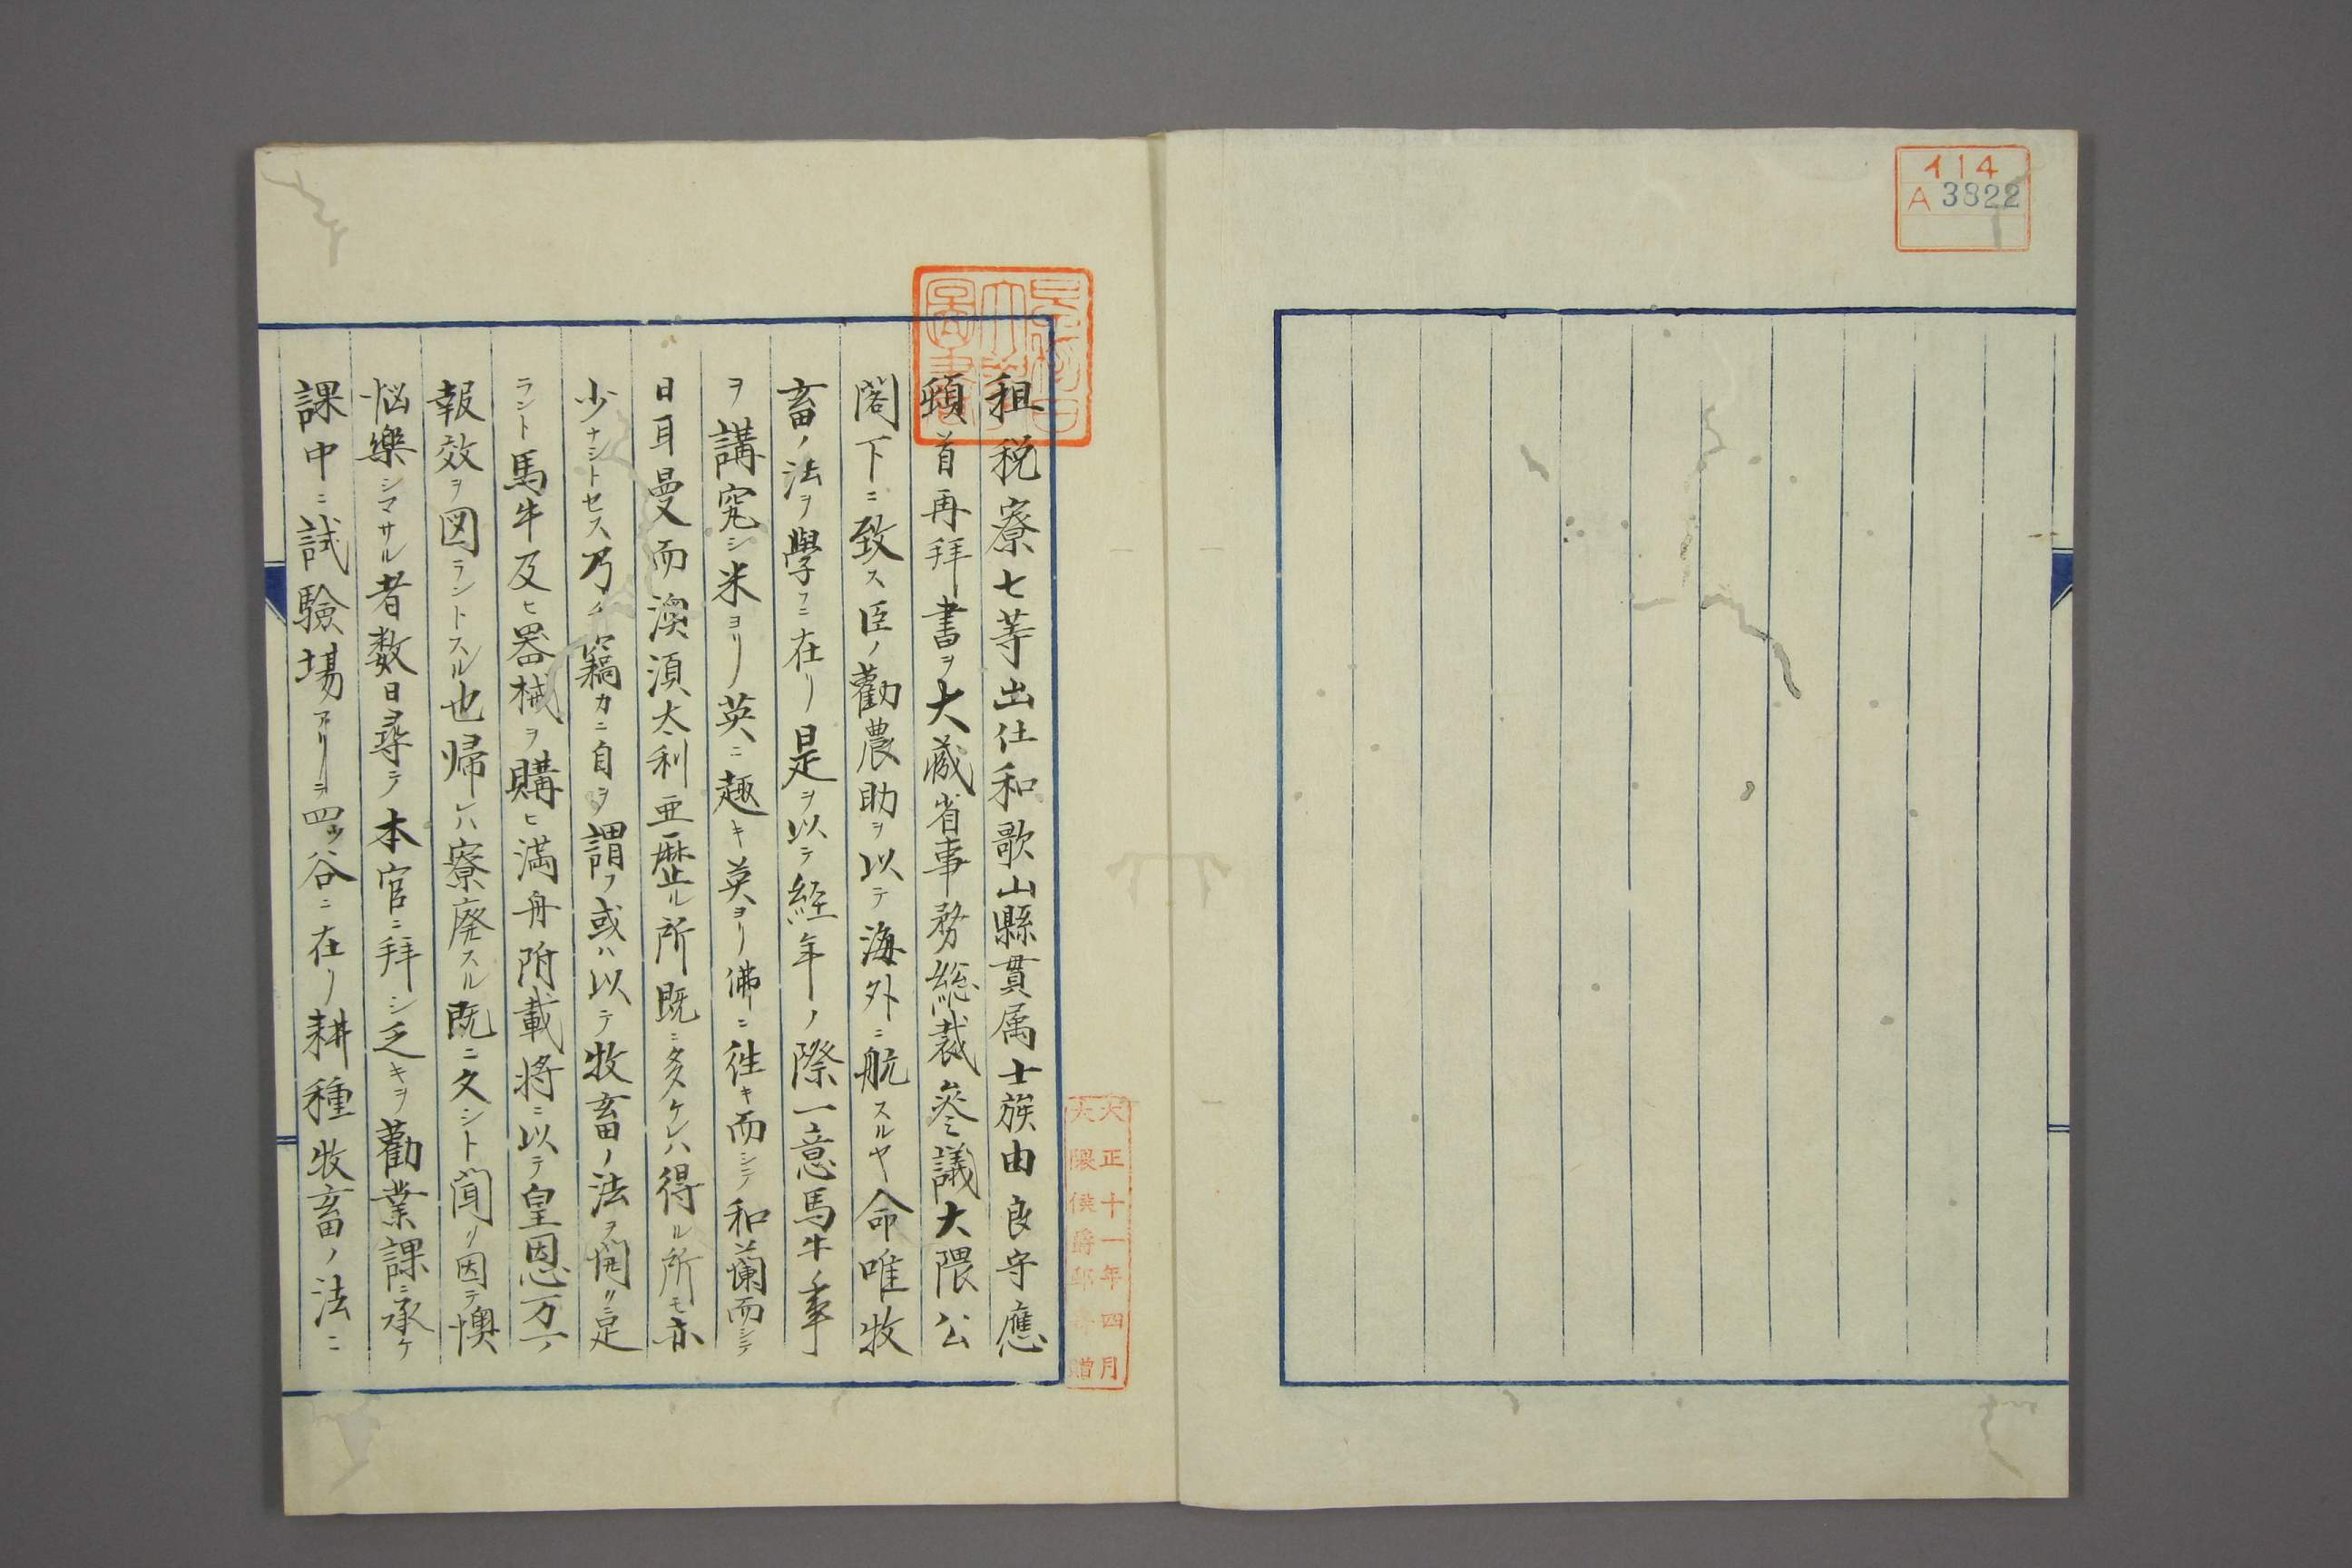 イ14
A 3822
租税寮七等出仕和歌山縣貫属士族由良守應
頓首再拜書ヲ大蔵省事務総裁参議大隈公
閣下ニ致ス臣ノ勸農助ヲ以テ海外ニ航スルヤ命唯牧
畜ノ法ヲ學フニ在リ是ヲ以テ経年ノ際一意馬牛ノ事
ヲ講究シ米ヨリ英ニ趣キ英ヨリ佛ニ徃キ而シテ和蘭而シテ
日耳曼而澳須太利亜歴ル所既ニ多ケレハ得ル所モ亦
少ナシトセス乃チ竊カニ自ヲ謂フ或ハ以テ牧畜ノ法ヲ開クニ足
ラント馬牛及ヒ器械ヲ購ヒ満舟附載将ニ以テ皇恩万一ノ
報效ヲ図ラントスル也帰レハ寮廃スル既ニ久シト聞ク因テ懊
悩樂シマサル者数日尋テ本官ニ拜シ乏キヲ勸業課ニ承ケ
課中ニ試驗場アリ四ッ谷ニ在リ耕種牧畜ノ法ニ
大正十一年四月
大隈侯爵邸寄贈